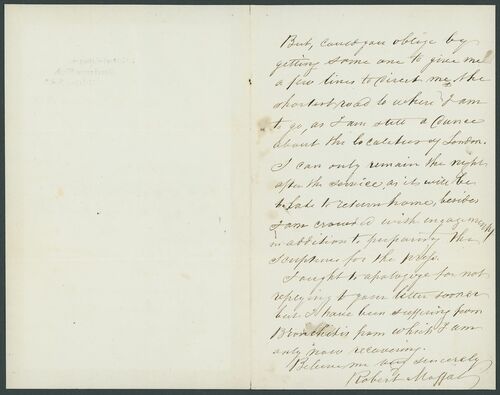 But, could you oblige by
getting some one to give me
a few lines to direct me, the
shortest road to where I am
to go, as I am still a
about the localities of London.
I can only remain the night
after the service as it will be
to late to return home, besides
I am crowded with engagements
in addition to preparing the
Scriptures for the press.
I ought to apologize for not
replying to your letter sooner
but I have been suffering from
Bronchitis from which I am
only now recovering.
Believe me very sincerely
Robert Moffat